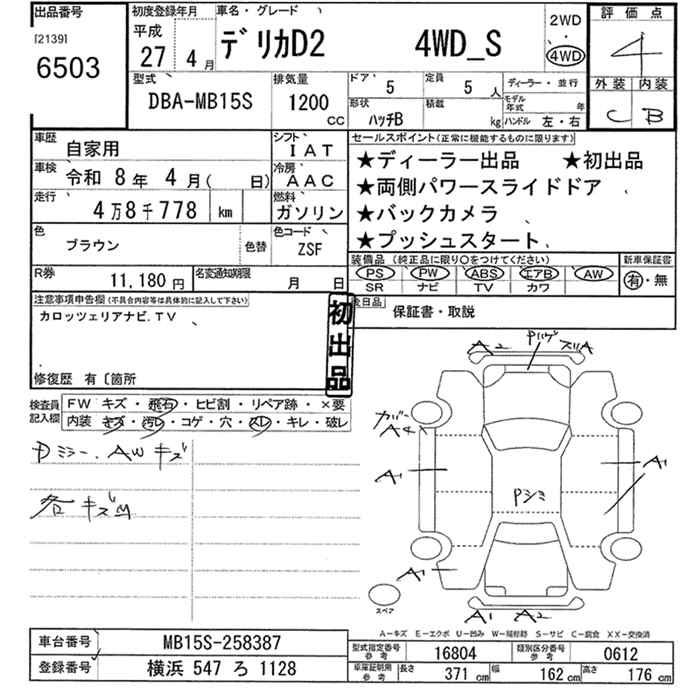 出品番号
[2139]
6503
初度登録年月
平成
27 4月
車名・グレード
デリカD2 4WD_S
2WD
4WD
評価点
4
外装 内装
C B
型式
DBA-MB15S
排気量
1200
CC
ドア
5
定員
5人
ディーラー・並行
形状
ハッチB
積載
kg
モデル年式 年
ハンドル 左・右
車歴
自家用
シフト
IAT
セールスポイント(正常に機能するものに限ります)
★ディーラー出品 ★初出品
★両側パワースライドドア
★バックカメラ
★プッシュスタート
車検
令和 8年 4月( 日)
冷房
AAC
走行
4万8千778 km
燃料
ガソリン
色
ブラウン
色替
色コード
ZSF
装備品(純正品に限り○をつけてください)
PS PW ABS エアB AW
SR ナビ TV カワ
新車保証書
有・無
R券
11,180円
名変通知期限
月 日
後日品
保証書・取説
注意事項申告欄(不具合内容等は具体的に記入して下さい)
カロッツェリアナビ.TV
初出品
修復歴 有〔箇所
検査員記入欄
FW キズ・飛石・ヒビ割・リペア跡・×要
内装 キズ・汚レ・コゲ・穴・スレ・キレ・破レ
Pミラー、AWキズ
各キズ凹
A2
Pハゲ
スリA
カバー
A4
A1
A1
Pシミ
A1
A1
A2
スペア
A-キズ E-エクボ U-凹み W-補修跡 S-サビ C-腐食 XX-交換済
車台番号
MB15S-258387
型式指定番号
参考
16804
類別区分番号
参考
0612
登録番号
横浜 547 ろ 1128
車庫証明用
参考
長さ
371 cm
幅
162 cm
高さ
176 cm